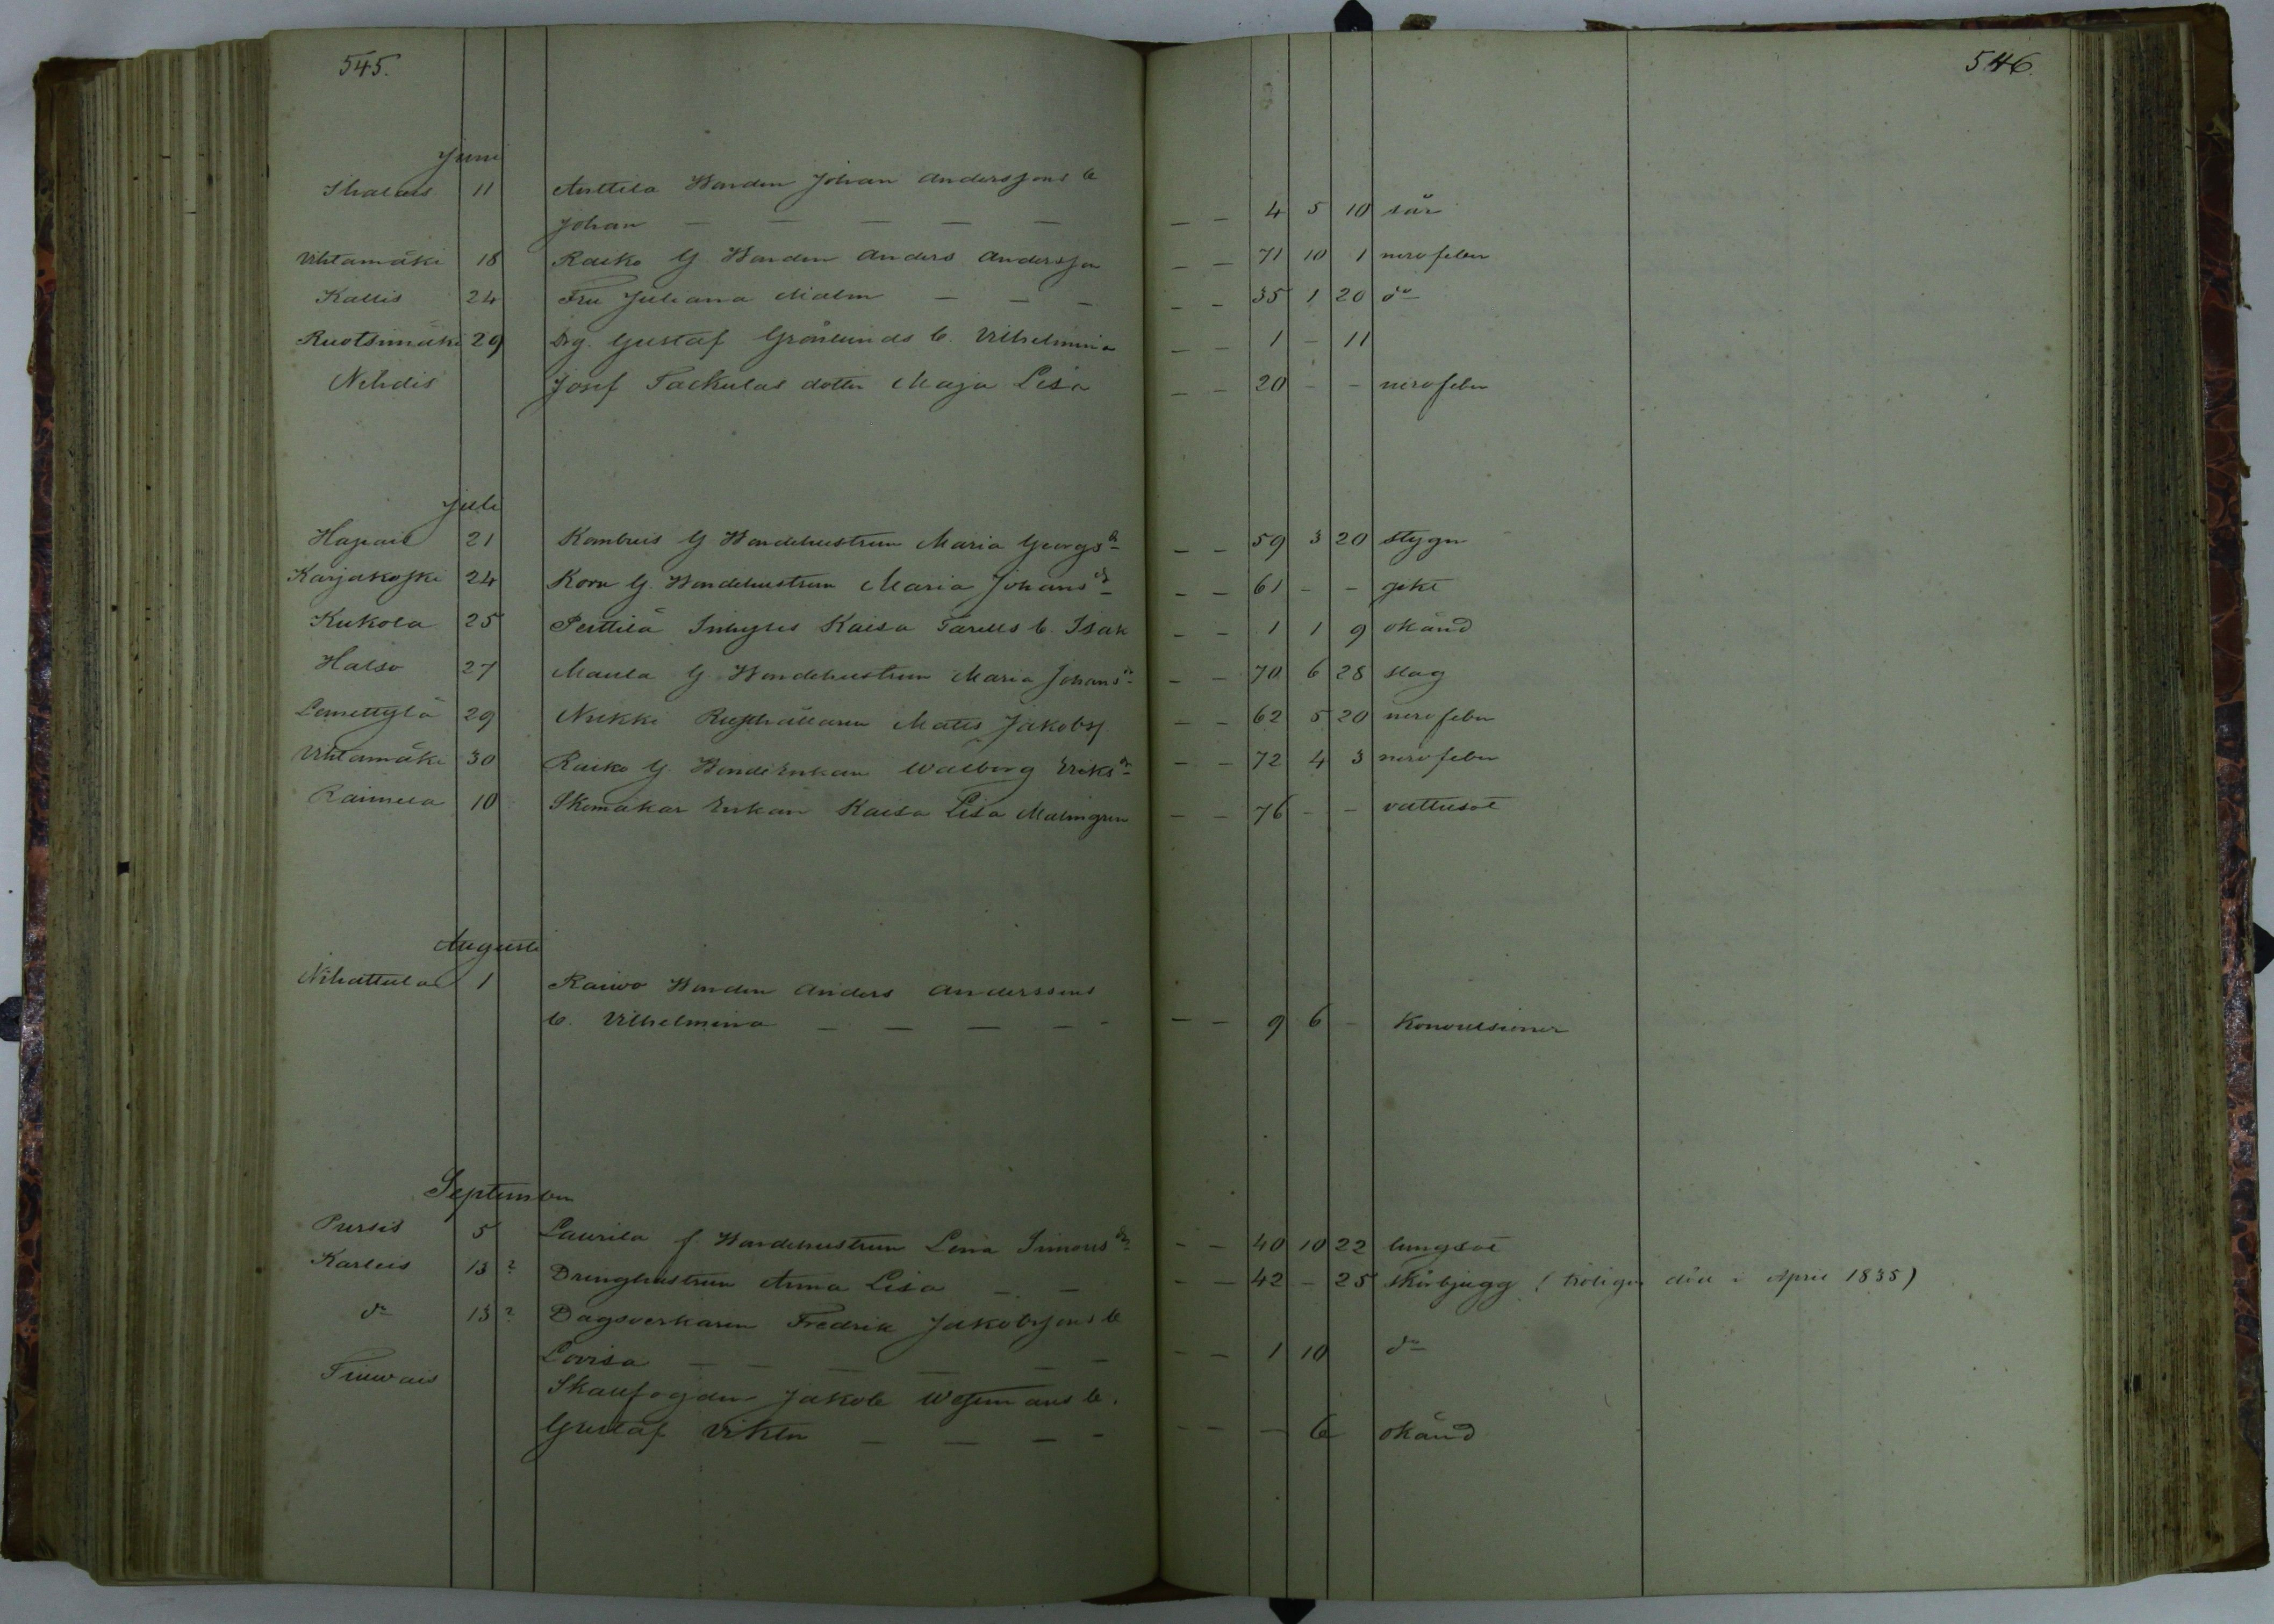 545.
546.
Juni
Ihalais 11 Anttila Bonden Johan Anderssons b
Johan — — — — — — — 4 5 10 sår
Vihtamäki 18 Raiko G Bonden Anders Andersson — — 71 10 1 nervfeber
Kallis 24 Fru Juliana Malm — — — — — 35 1 20 do
Ruotsinmäki 29 Drg. Gustaf Grönlunds b. Vilhelmina — — 1 – 11
Nihdis Josef Tackulas dotter Maja Lisa — — 20 – – nervfeber
Juli
Hapais 21 Kambuis G Bondehustrun Maria Georgsdr — — 59 3 20 stygn
Karjakoski 24 Korn G. Bondehustrun Maria Johansdr — — 61 – – gikt
Kukola 25 Perttilä Inhyses Kaisa Farells b. Isak — — 1 1 9 okänd
Halso 27 Maula G Bondehustrun Maria Johansdr — — 70 6 28 slag
Lemettylä 29 Nikki Rusthållaren Matts Jakobss — — 62 5 20 nervfeber
Vihtamäki 30 Raiko G Bondeenkan Walborg Eriksdr — — 72 4 3 nervfeber
Raimela 10 Skomakar Enkan Kaisa Lisa Malmgren — — 76 – – vattusot
Augusti
Nihattula 1 Raiwo Bonden Anders Anderssons
b. Vilhelmina — — — — — — — 9 6 – Konvulsioner
September
Pursis 5 Laurila f. Bondehustrun Lena Simonsdr — — 40 10 22 lungsot
Karleis 13? Drenghustrun Anna Lisa — — — — 42 – 25 skörbjugg (troligen död i April 1835)
do 13? Dagsverkaren Fredrik Jakobssons b
Lovisa — — — — — — — — 1 10 do
Finwais Skaufogden Jakob b.
Gustaf Viktor — — — — — — — 6 okänd